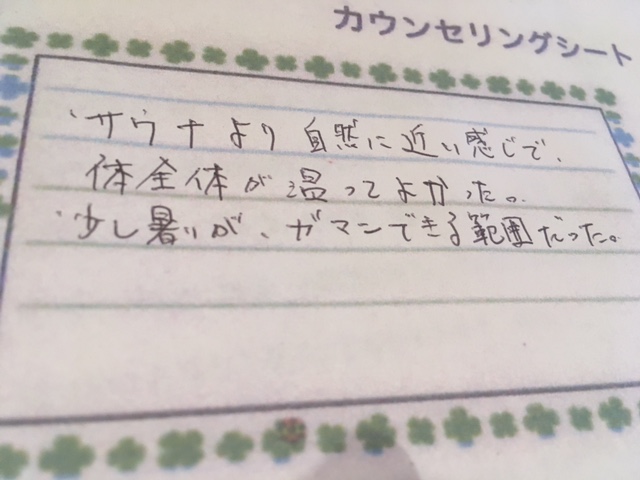 カウンセリングシート
・サウナより自然に近い感じで、
体全体が温ってよかった。
・少し暑いが、ガマンできる範囲だった。